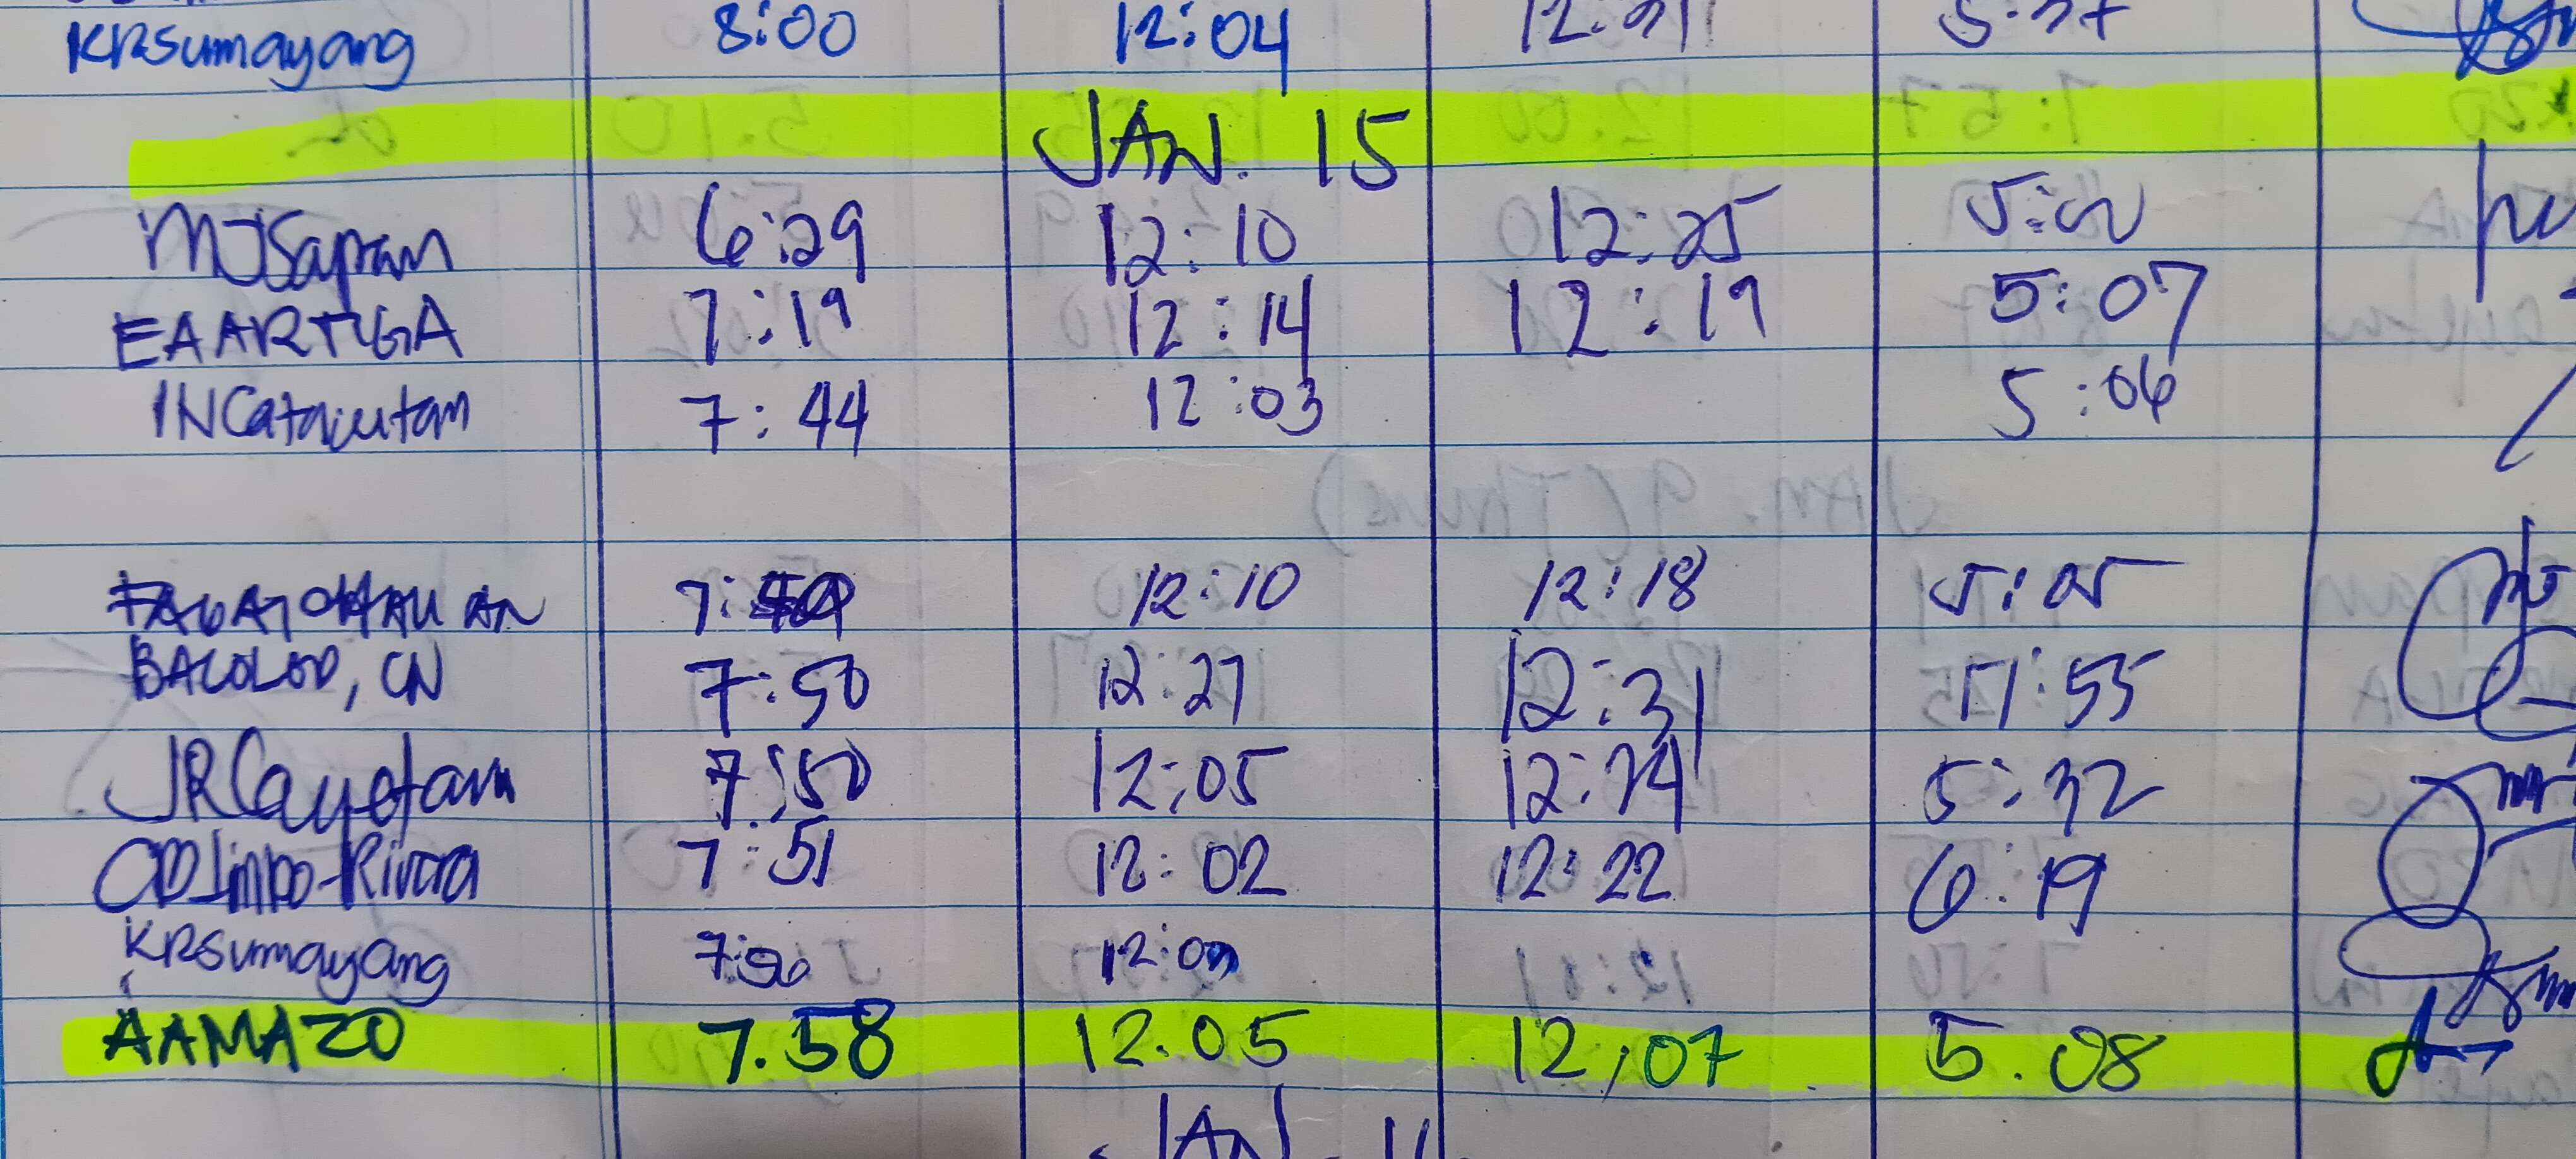 KRSumayang 8:00 12:04
JAN. 15
MJSapran 6:29 12:10 12:25 5:00
EAARTUGA 7:19 12:14 12:19 5:07
INCatacutan 7:44 12:03 5:06
7: 12:10 12:18 5:05
BACOLOD, CN 7:50 12:27 12:31 :55
JRCayetano 7:50 12:05 12:24 5:32
7:51 12:02 12:22 6:19
KRSumayang
AAMAZO 7.58 12.05 12:07 5.08
JAN